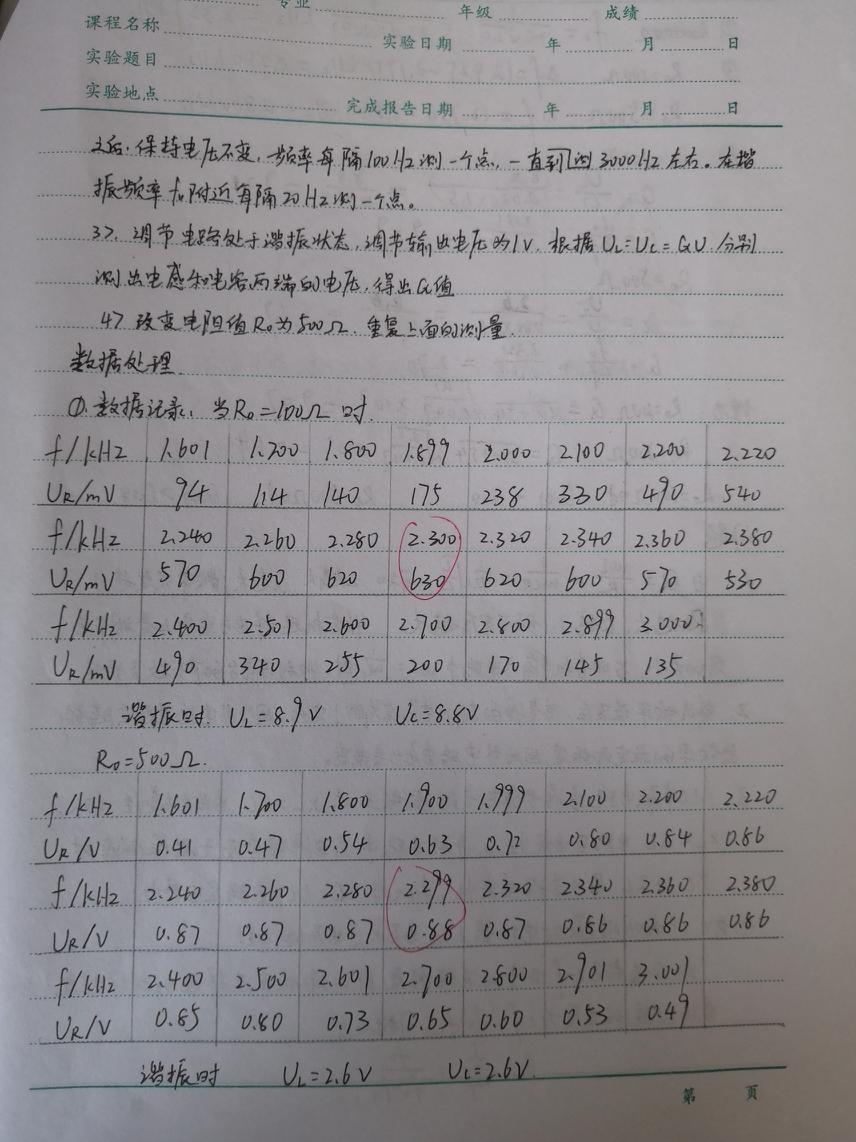 专业 年级 成绩
课程名称 实验日期 年 月 日
实验题目
实验地点 完成报告日期 年 月 日
之后，保持电压不变，频率每隔100Hz测一个点，一直到测3000Hz左右。在谐
振频率f₀附近每隔20Hz测一个点。
3>. 调节电路处于谐振状态，调节输出电压为1V. 根据U_L=U_C=QU 分别
测出电感和电容两端的电压，得出Q值
4> 改变电阻值R₀为500Ω. 重复上面的测量.
数据处理
①. 数据记录，当R₀=100Ω时.
f/kHz 1.601 1.700 1.800 1.899 2.000 2.100 2.200 2.220
U_R/mV 94 114 140 175 238 330 490 540
f/kHz 2.240 2.260 2.280 2.300 2.320 2.340 2.360 2.380
U_R/mV 570 600 620 630 620 600 570 530
f/kHz 2.400 2.501 2.600 2.700 2.800 2.899 3.000
U_R/mV 490 340 255 200 170 145 135
谐振时 U_L=8.9V U_C=8.8V
R₀=500Ω.
f/kHz 1.601 1.700 1.800 1.900 1.999 2.100 2.200 2.220
U_R/V 0.41 0.47 0.54 0.63 0.72 0.80 0.84 0.86
f/kHz 2.240 2.260 2.280 2.299 2.320 2.340 2.360 2.380
U_R/V 0.87 0.87 0.87 0.88 0.87 0.86 0.86 0.86
f/kHz 2.400 2.500 2.601 2.700 2.800 2.901 3.001
U_R/V 0.85 0.80 0.73 0.65 0.60 0.53 0.49
谐振时 U_L=2.6V U_C=2.6V.
第 页